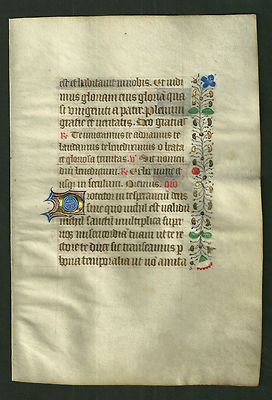 est et habitauit in nobis. Et uidi
mus gloriam eius gloria qua
si unigeniti a patre. Plenum
gratie et ueritatis. Deo gratias
Te inuocamus te adoramus te
laudamus te benedicimus o beata
et gloriosa trinitas. Sit nomen
dni benedictum. Ex hoc nunc et
usqz in seculum. Oremus.
Protector in te sperancium deus
sine quo nichil est ualidum
nichil sanctum multiplica super
nos misericordiam tuam ut te re
ctore te duce sic transeamus p
bona temporalia ut no amita